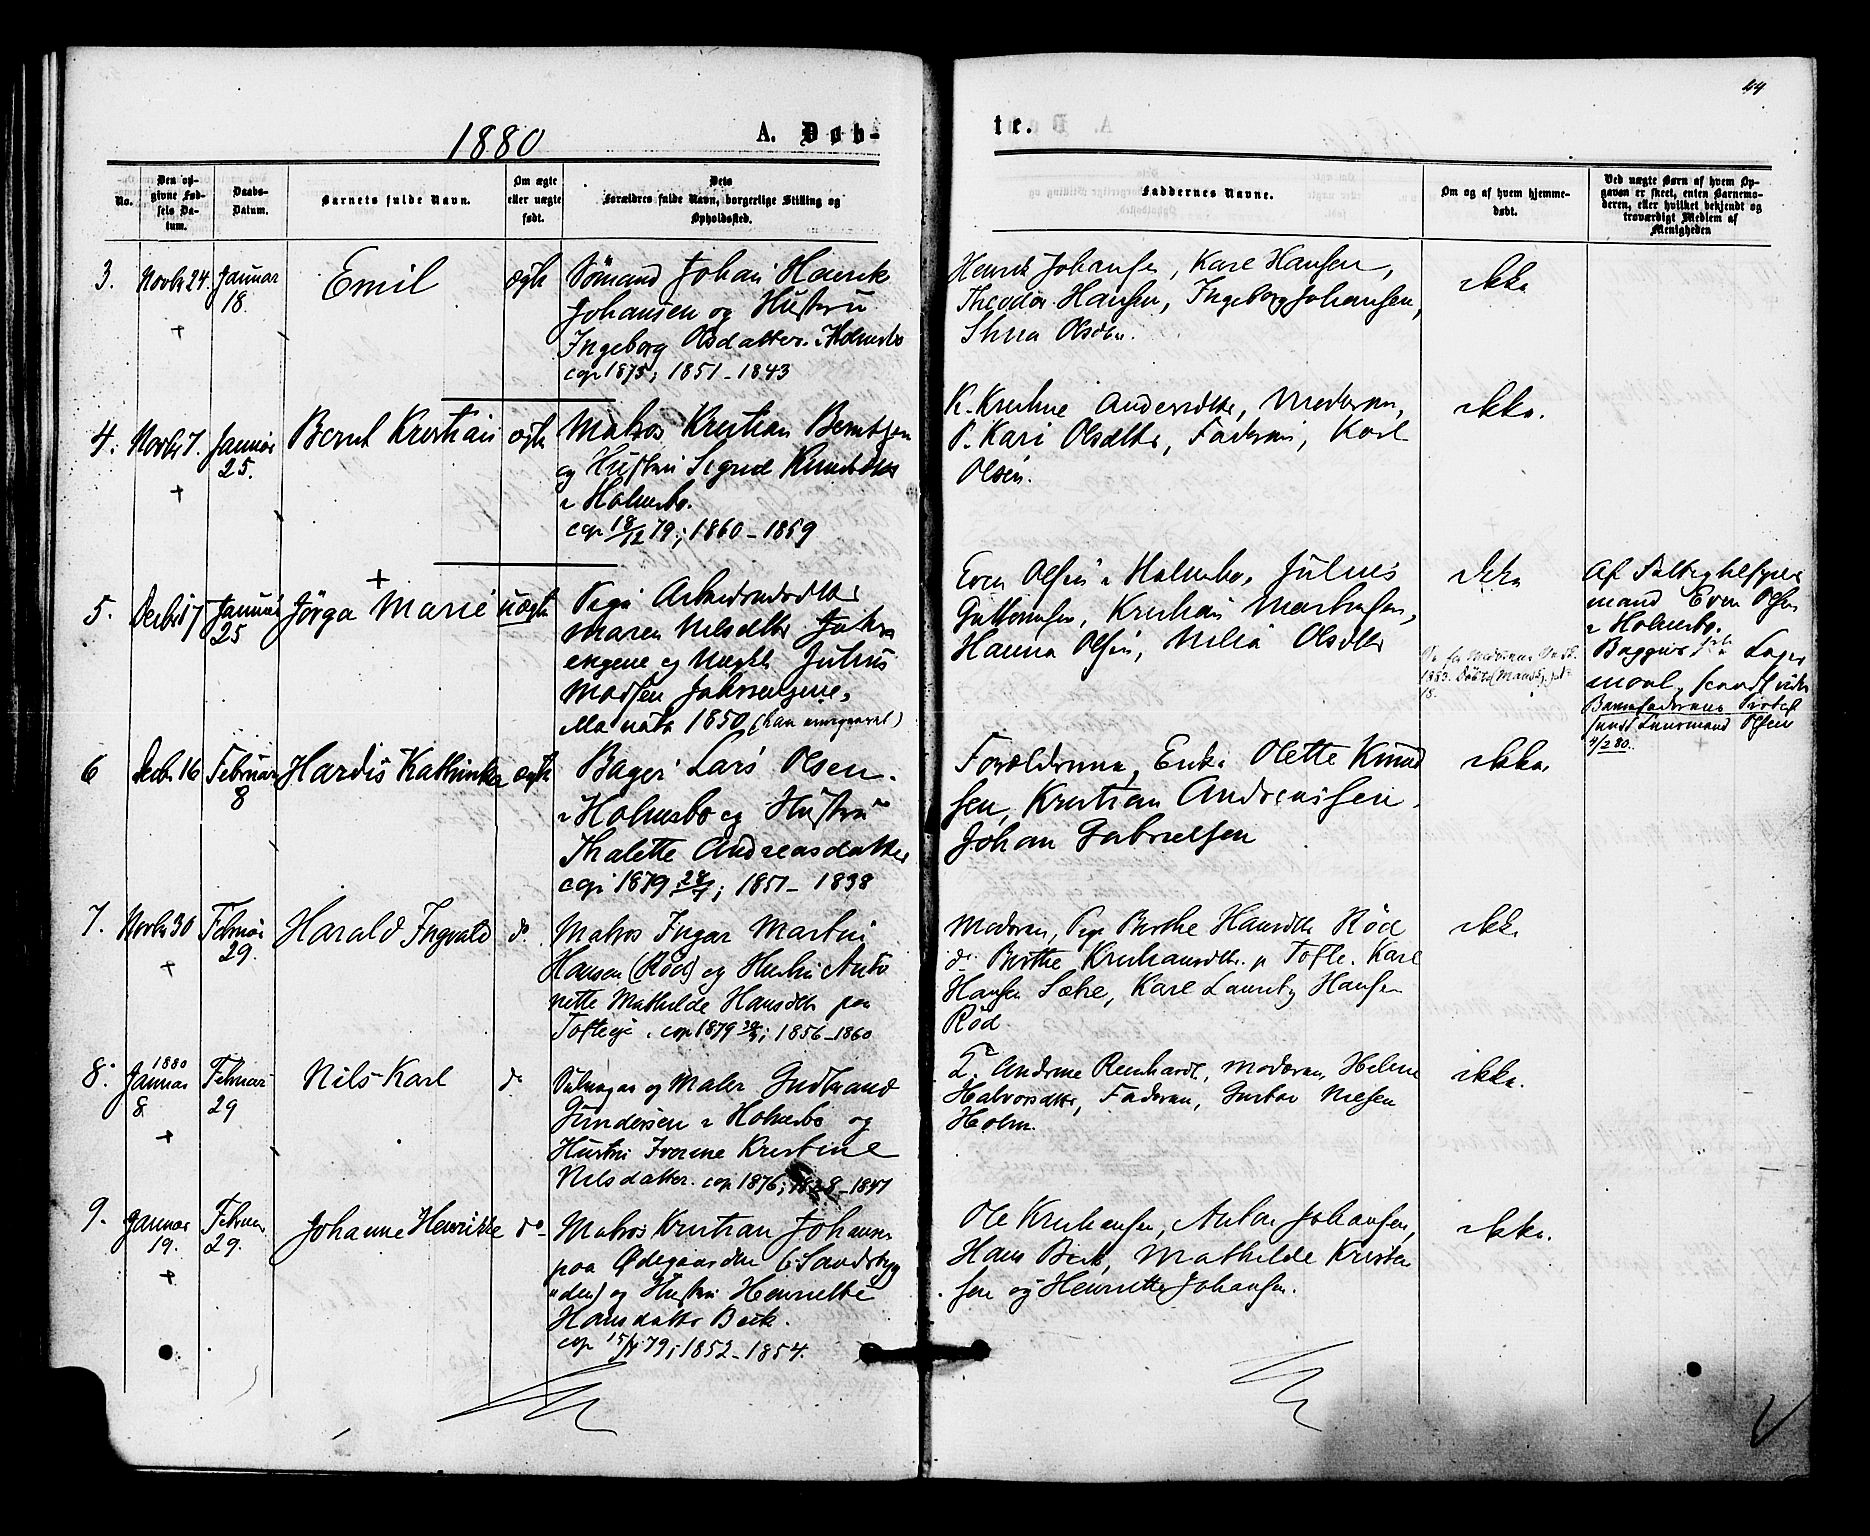 44
1880
A. Døb-
te.
No.
Den op-
givne Fød-
sels Da-
tum.
Daabs-
Datum.
Barnets fulde Navn.
Om ægte
eller uægte
født.
Dets
Forældres fulde Navn, borgerlige Stilling og
Opholdssted.
Faddernes Navne.
Om og af hvem hjemme-
døbt.
Ved uægte Børn af hvem Op-
gaven er skeet, enten Barnemo-
deren, eller hvilket bekjendt og
troværdigt Medlem af
Menigheden
3.
Novbr 24.
Januar
18.
Emil
ægte
Sømand Johan Henrik
Johansen og Hustru
Ingeborg Olsdatter. i Holmsbo
cop 1875; 1851-1843
Henrik Johansen, Karl Hansen,
Theodor Hansen, Ingeborg Johansen,
Olsdtr.
ikke
4.
Novbr 7.
Januar
25.
Bernt Kristian
ægte
Matros Kristian Berntzen
og Hustru Sigrid Knudsdtr
i Holmsbo.
cop 18/12 79; 1860-1859
K. Andersdtr, Moderen,
P. Kari Olsdtr, Faderen, Karl
Olsen.
ikke.
5.
Decbr 17
Januar
25
Jörga Marie
uægte
Pige
Maren Nilsdtr
og Ungk. Julius
Madsen
1850
Even Olsen i Holmsbo, Julius
Kristian
Hanna Olsen, Olsdtr
ikke
Af
mand Even Olsen
i Holmsbo.
4/2 80.
6
Decbr 16
Februar
8
Hardis Kathinka
ægte
Bager Lars Olsen.
i Holmsbo og Hustru
Thalette Andreasdatter
cop 1879 28/7; 1851-1838
Forældrene, Enke Olette Knud
sen, Kristian Andreassen.
Johan Gabrielsen
ikke.
7.
Novbr 30
Februar
29.
Harald Ingvald
do.
Matros Ingar Martin
Hansen (Rød) og Hustru Anto
nette Mathilde Hansdtr paa
Tofteeje. cop 1879; 1856-1860
Moderen, Pige Berthe Hansdtr Röd
do Berthe Kristiansdtr. p Tofte. Karl
Hansen Sætre, Karl Lauritz Hansen
Röd
ikke
8.
1880
Januar
8.
Februar
29
Nils Karl
do
og Maler Gudbrand
Gundersen i Holmsbo og
Hustru Ivorine Kristine
Nilsdatter. cop 1876; -1847
Andrine Reinhardt, Moderen, Helene
Halvorsdtr, Faderen, Gustav Nilsen
Holm.
ikke.
9.
Januar
19.
Februar
29.
Johanne Henrikke
do
Matros Kristian Johansen
paa Ødegaarden (Sandbyg
den) og Hustru Henriette
Hansdatter Beck.
cop 79; 1852-1854.
Ole Kristiansen, Anton Johansen,
Hans Beck, Mathilde Kristen
sen og Henriette Johansen.
ikke.